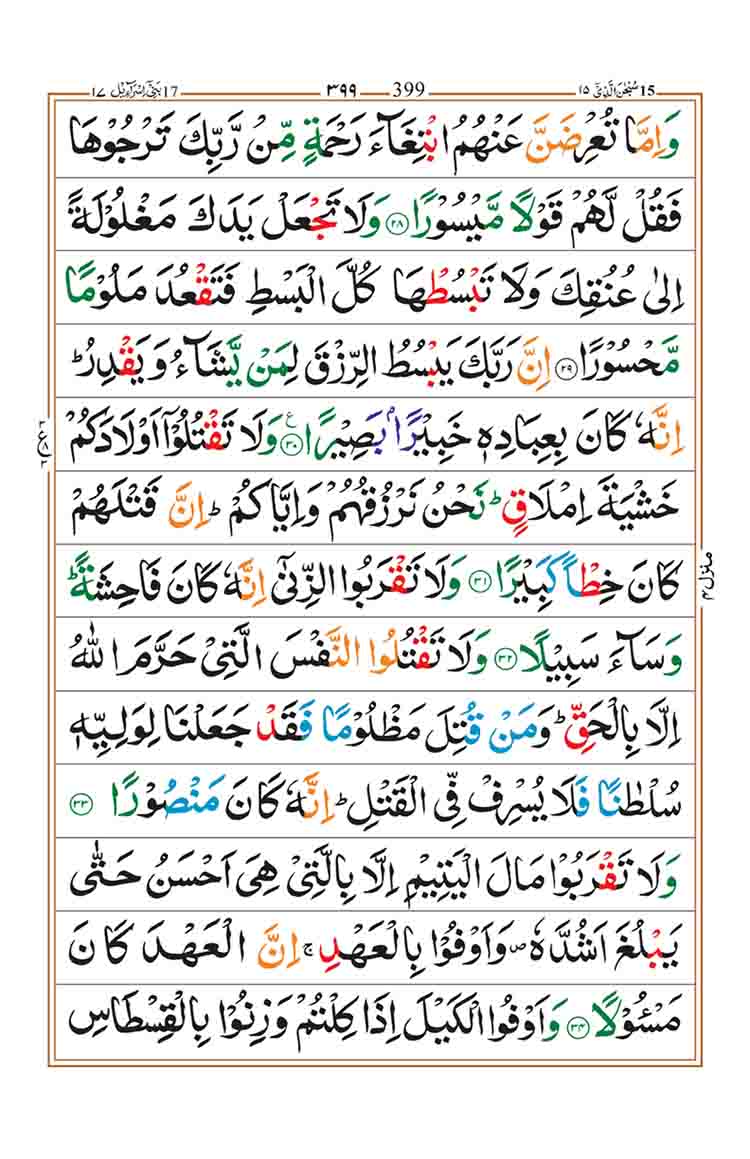 15 سُبْحٰنَ الَّذِیْۤ ١٥ 399 ٣٩٩ 17 بَنِیْۤ اِسْرَآءِیْل ١٧
وَاِمَّا تُعْرِضَنَّ عَنْهُمُ ابْتِغَآءَ رَحْمَةٍ مِّنْ رَّبِّكَ تَرْجُوْهَا
فَقُلْ لَّهُمْ قَوْلًا مَّيْسُوْرًا ﴿٢٨﴾ وَلَا تَجْعَلْ يَدَكَ مَغْلُوْلَةً
اِلٰى عُنُقِكَ وَلَا تَبْسُطْهَا كُلَّ الْبَسْطِ فَتَقْعُدَ مَلُوْمًا
مَّحْسُوْرًا ﴿٢٩﴾ اِنَّ رَبَّكَ يَبْسُطُ الرِّزْقَ لِمَنْ يَّشَآءُ وَيَقْدِرُ ؕ
اِنَّهٗ كَانَ بِعِبَادِهٖ خَبِيْرًۢا بَصِيْرًا ﴿٣٠﴾ ع وَلَا تَقْتُلُوْۤا اَوْلَادَكُمْ
خَشْيَةَ اِمْلَاقٍ ؕ نَحْنُ نَرْزُقُهُمْ وَاِيَّاكُمْ ؕ اِنَّ قَتْلَهُمْ
كَانَ خِطْاً كَبِيْرًا ﴿٣١﴾ وَلَا تَقْرَبُوا الزِّنٰٓى اِنَّهٗ كَانَ فَاحِشَةً ؕ
وَسَآءَ سَبِيْلًا ﴿٣٢﴾ وَلَا تَقْتُلُوا النَّفْسَ الَّتِىْ حَرَّمَ اللّٰهُ
اِلَّا بِالْحَقِّ ؕ وَمَنْ قُتِلَ مَظْلُوْمًا فَقَدْ جَعَلْنَا لِوَلِيِّهٖ
سُلْطٰنًا فَلَا يُسْرِفْ فِّى الْقَتْلِ ؕ اِنَّهٗ كَانَ مَنْصُوْرًا ﴿٣٣﴾
وَلَا تَقْرَبُوْا مَالَ الْيَتِيْمِ اِلَّا بِالَّتِىْ هِىَ اَحْسَنُ حَتّٰى
يَبْلُغَ اَشُدَّهٗ ۖ وَاَوْفُوْا بِالْعَهْدِ ۚ اِنَّ الْعَهْدَ كَانَ
مَسْـُٔوْلًا ﴿٣٤﴾ وَاَوْفُوا الْكَيْلَ اِذَا كِلْتُمْ وَزِنُوْا بِالْقِسْطَاسِ
ع ٨
منزل ٤